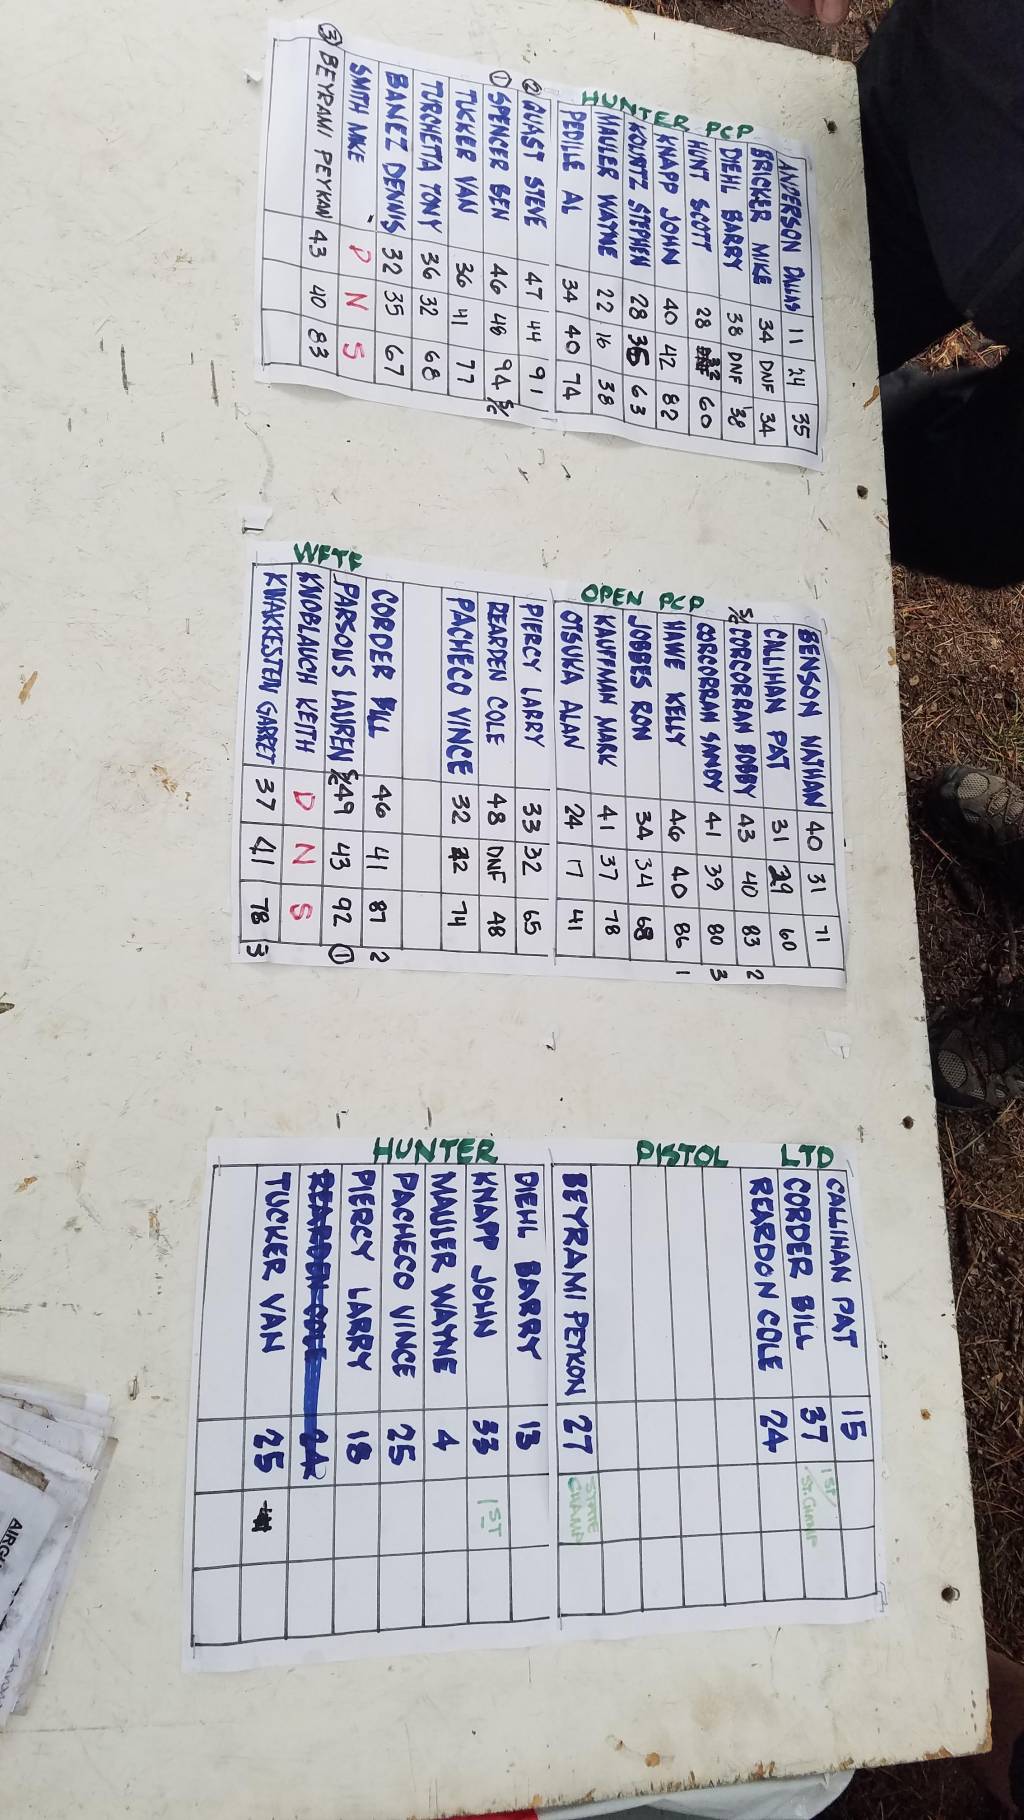 HUNTER PCP
ANDERSON DALLAS 11 24 35
BRICKER MIKE 34 DNF 34
DIEHL BARRY 38 DNF 38
HUNT SCOTT 28 32 60
KNAPP JOHN 40 42 82
STEPHEN 28 35 63
MAULER WAYNE 22 16 38
PEVILLE AL 34 40 74
② QUAST STEVE 47 44 91
① SPENCER BEN 46 48 94 S/C
TUKKER VAN 36 41 77
TURCHETTA TONY 36 32 68
BANEZ DENNIS 32 35 67
SMITH MIKE D N S
③ BEYRAMI PEYKAN 43 40 83
OPEN PCP
BENSON NATHAN 40 31 71
CALLIHAN PAT 31 29 60
S/C CORCORRAN BOBBY 43 40 83 2
CORCORRAN SANDY 41 39 80 3
HAWE KELLY 46 40 86 1
JOBBES RON 34 34 68
KAUFFMAN MARK 41 37 78
OTSUKA ALAN 24 17 41
PIERCY LARRY 33 32 65
REARDEN COLE 48 DNF 48
PACHECO VINCE 32 42 74
WFTF
CORDER BILL 46 41 87 2
PARSONS LAUREN S/C 49 43 92 ①
KNOBLAUCH KEITH D N S
KWAKKESTEIN GARRET 37 41 78 3
PISTOL LTD
CALLIHAN PAT 15
CORDER BILL 37 1ST/ ST. CHAMP
REARDON COLE 24
HUNTER
BEYRAMI PEYKON 27 STATE CHAMP
DIEHL BARRY 13
KNAPP JOHN 33 1ST
MAULER WAYNE 4
PACHECO VINCE 25
PIERCY LARRY 18
REARDEN COLE 24
TUCKER VAN 25